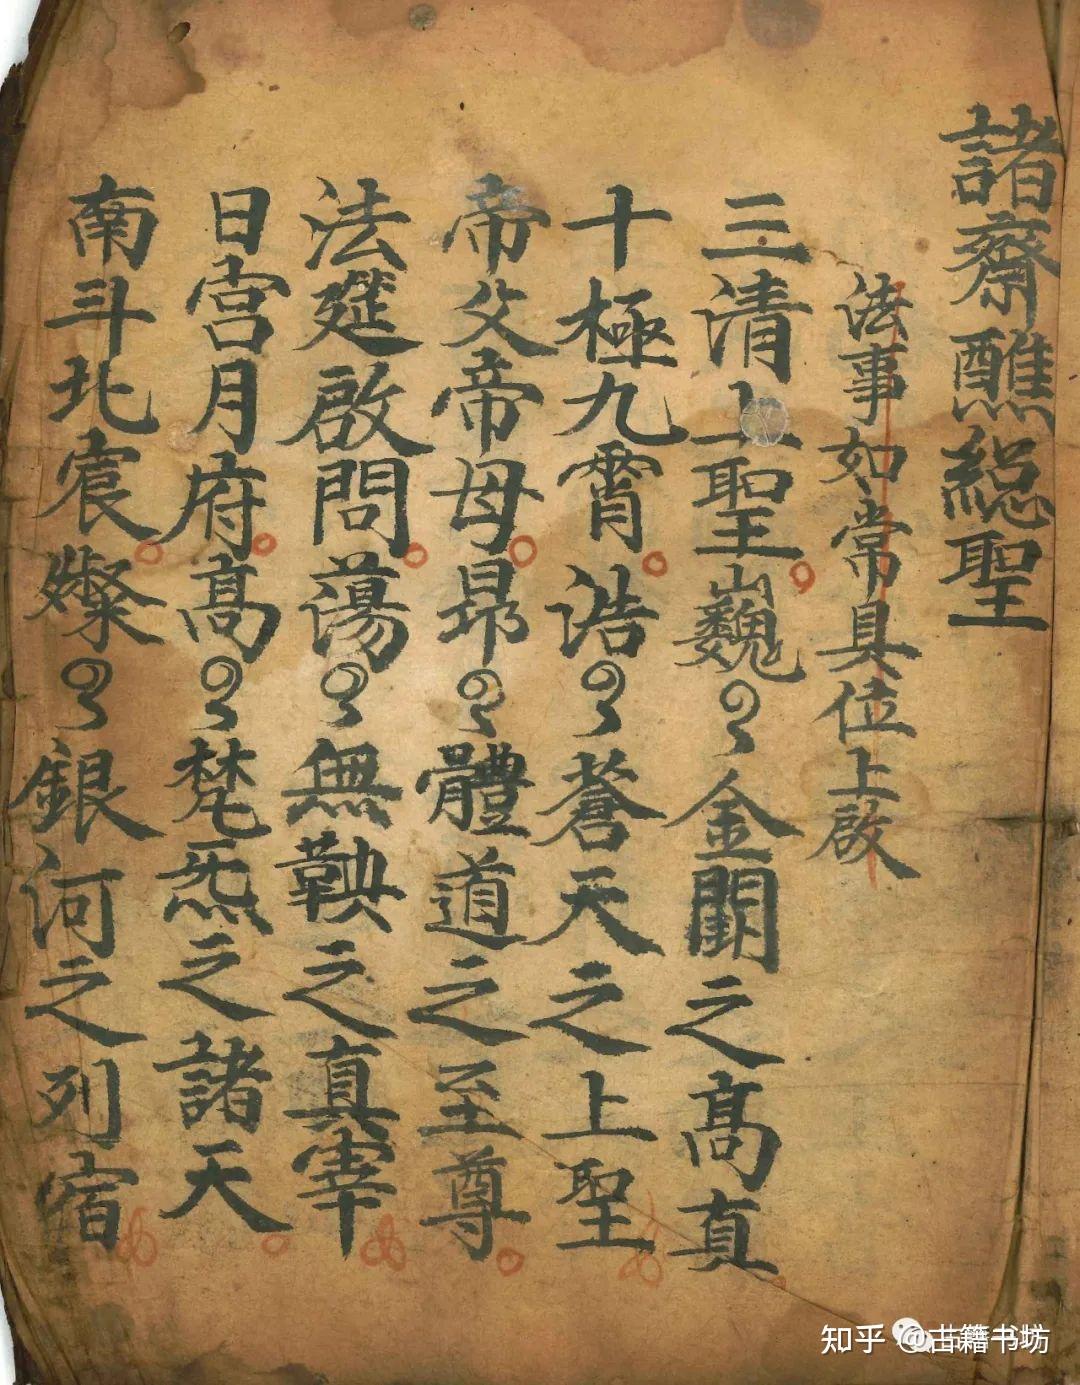 諸齋醮総聖
法事如常具位上啟
三清上聖巍〻金闕之高真
十極九霄浩〻蒼天之上聖
帝父帝母昂〻體道之至尊
法筵啟問蕩〻無鞅之真宰
日宮月府高〻梵炁之諸天
南斗北宸燦〻銀河之列宿
知乎 @古籍书坊